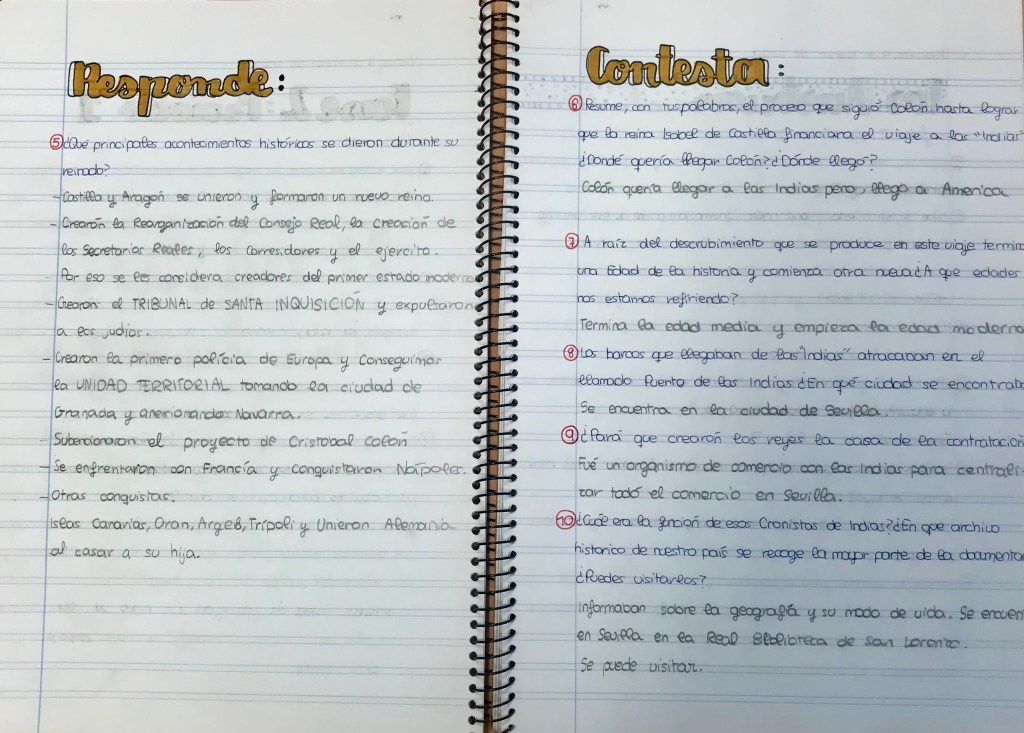 Responde:
5 ¿Qué principales acontecimientos históricos se dieron durante su
reinado?
- Castilla y Aragón se unieron y formaron un nuevo reino.
- Crearón la Reorganización del Consejo Real, la creación de
los Secretarios Reales, los corregidores y el ejercito.
Por eso se les considera creadores del primer estado moderno
- Crearon el TRIBUNAL de SANTA INQUISICIÓN y expulsaron
a los judios.
- Crearon la primero policía de Europa y Conseguimos
la UNIDAD TERRITORIAL tomando la ciudad de
Granada y anexionando Navarra.
- Subencionaron el proyecto de Cristobal Colón
- Se enfrentaron con Francía y conquistaron Naípoles.
- Otras conquistas.
Islas Canarias, Oran, Argel, Trípoli y Unieron Alemania
al casar a su hija.
Contesta:
6 Resume, con tus palabras, el proceso que siguió Colón hasta lograr
que la reina Isabel de Castilla financiara el viaje a las "Indias"
¿Dondé quería llegar Colón? ¿Dónde llegó?
Colón quería llegar a las Indias pero, llego a America
7 A raíz del descrubimiento que se produce en este viaje termin
una Edad de la historia y comienza otra nueva ¿A que edades
nos estamos refiriendo?
Termina la edad media y empieza la edad moderna
8 Los barcos que llegaban de las "Indias" atracaban en el
llamado Puento de las Indias ¿En qué ciudad se encontrab
Se encuentra en la ciudad de Sevilla.
9 ¿Pará que crearón los reyes la casa de la contratación
Fué un organismo de comercio con las Indias para centrali-
zar todó el comercio en Sevilla.
10 ¿Cuál era la función de esos Cronistas de Indias? ¿En que archico
historico de nuestro país se recoge la mayor parte de la documentac
¿Puedes visitarlos?
Informaban sobre la geografía y su modo de vida. Se encuen
en Sevilla en la Real Biblioteca de San Lorenzo.
Se puede visitar.